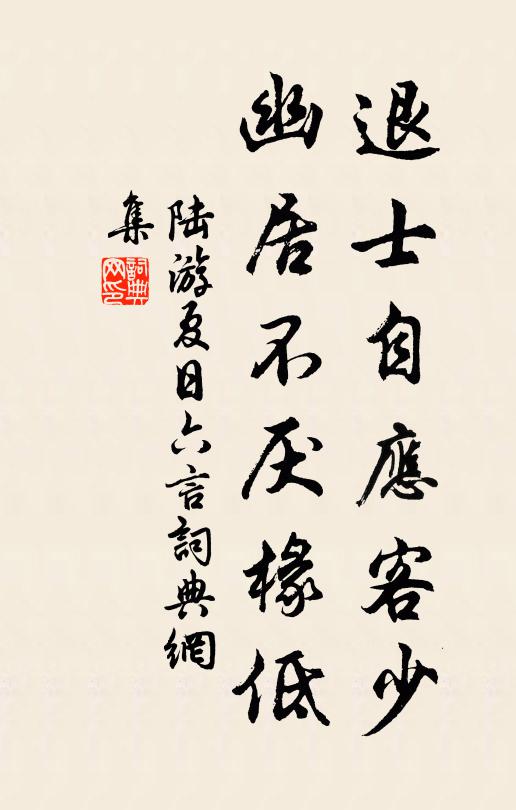 退士自應客少
幽居不厌椽低
陆游夏日六言詞典網
集
詞典
网印